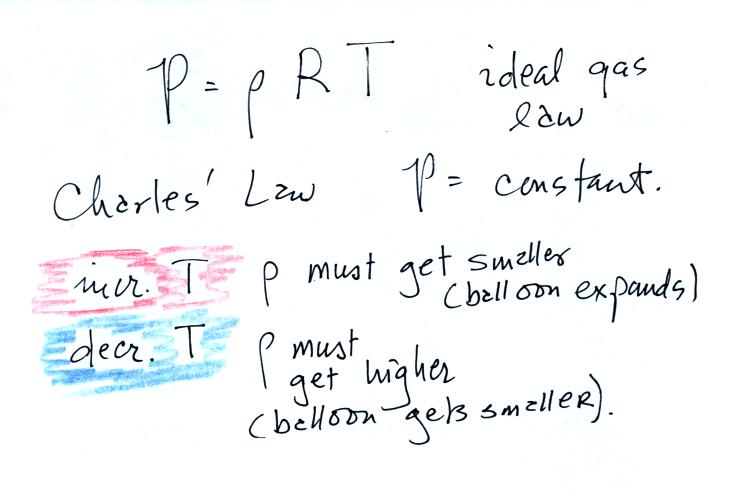 P = ρ R T ideal gas
law
Charles' Law P = constant.
incr. T ρ must get smaller
(balloon expands)
decr. T ρ must
get higher
(balloon gets smaller).